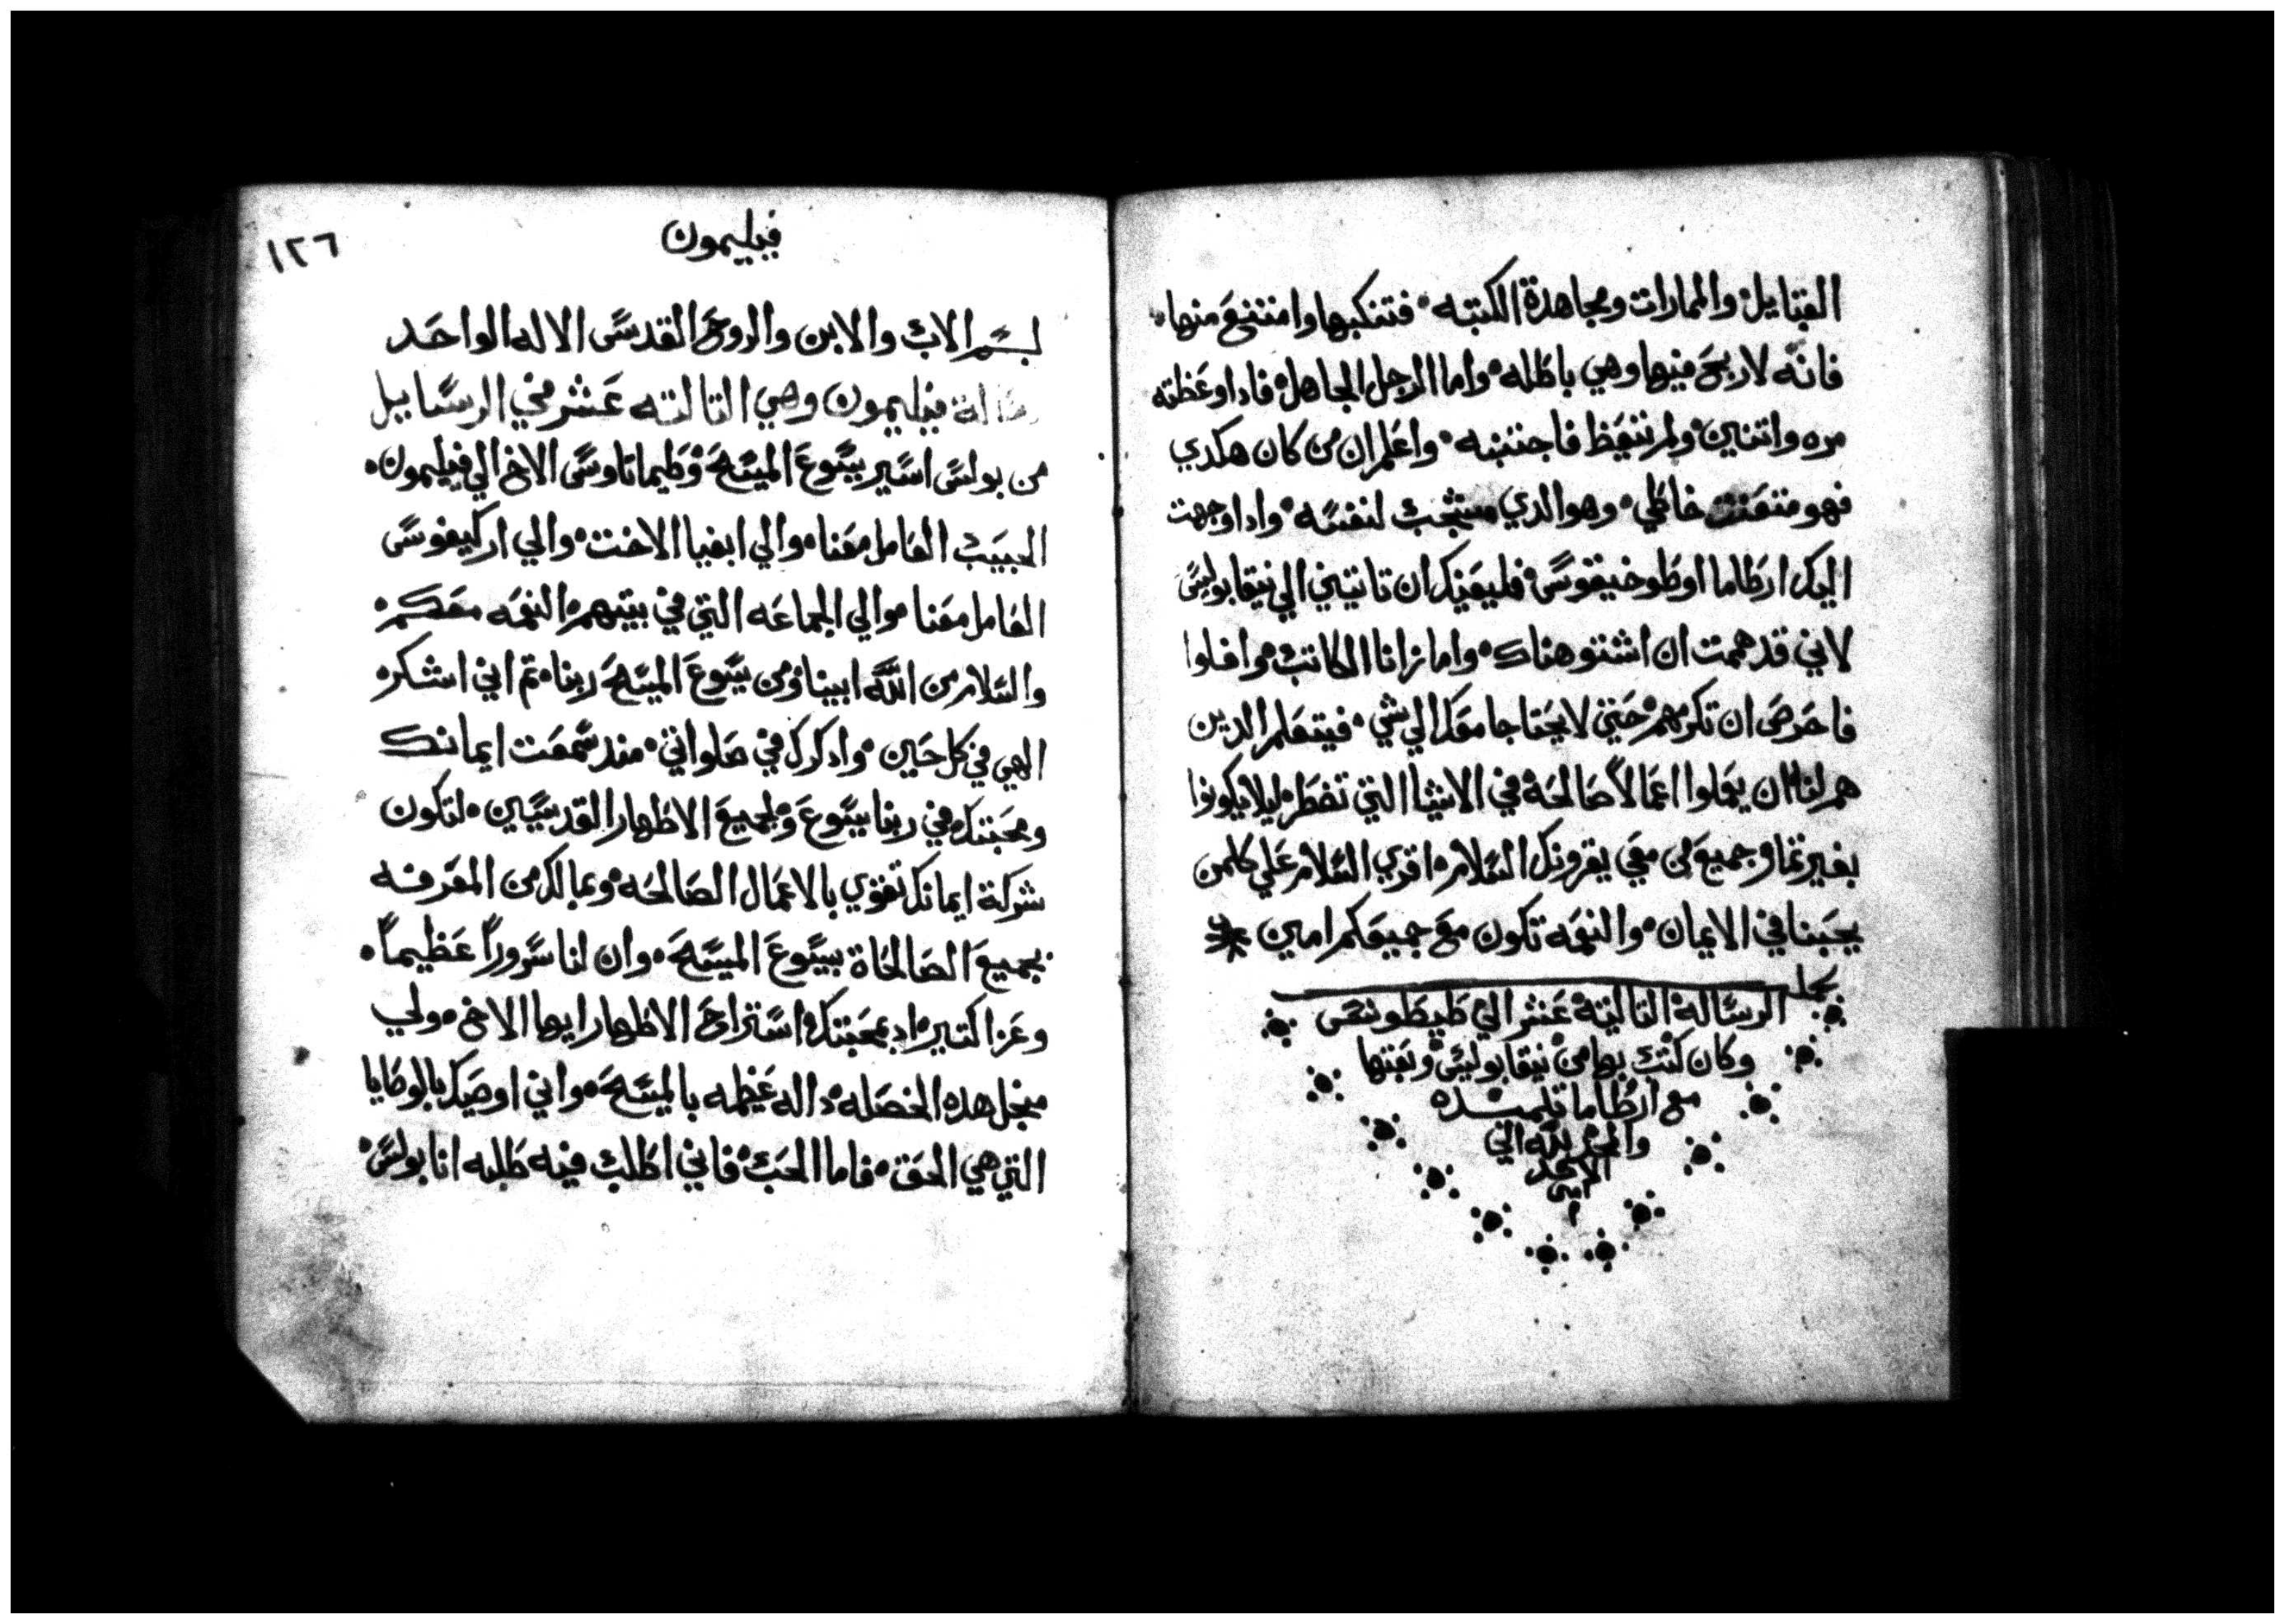 القبايل والممارات ومجاهدة الكتبه فتنكبها وامتنع منها
فانه لا ربح فيها وهي باطله واما الرجل الجاهل فادا وعظته
مره واتنين ولم يتعظ فاجتنبه واعلم ان من كان هكدي
فهو متعنت خاطي وهو الدي مشجب لنفسه وادا وجهت
اليك ارطاما اوطوخيقوس فليعنيك ان تاتيني الي نيقابوليس
لاني قد هممت ان اشتو هناك واما زانا الكاتب وافلوا
فاحرص ان تكرمهم حتي لا يحتاجا معك الي شي فيتعلم الدين
هم لنا ان يعملوا اعمالاً صالحة في الاشيا التي تضطر ليلا يكونوا
بغير تما وجميع من معي يقرونك السلام اقري السلام علي كلمن
يحبنا في الايمان والنعمه تكون مع جميعكم امين
كمل
الرسالة التالتة عشر الي طيطوس
وكان كتب بها من نيقابوليس وبعتها
مع ارطاما تلميده
والمجد لله الي
الابد
امين
فيليمون
١٢٦
بسم الاب والابن والروح القدس الاله الواحد
رسالة فيليمون وهي التالته عشر في الرسايل
من بولس اسير يسوع المسيح وطيماتاوس الاخ الي فيليمون
الحبيب العامل معنا والي ابفيا الاخت والي اركيفوس
العامل معنا والي الجماعه التي في بيتهم النعمه معكم
والسلام من الله ابينا ومن يسوع المسيح ربنا تم اني اشكر
الهي في كل حين وادكرك في صلواتي مند سمعت ايمانك
ومحبتك في ربنا يسوع ولجميع الاطهار القديسيين لتكون
شركة ايمانك تقوي بالاعمال الصالحه وبمالك من المعرفه
بجميع الصالحاة بيسوع المسيح وان لنا سروراً عظيماً
وعزا كتير اد بمحبتك استراح الاطهار ايها الاخ ولي
من‍جل هده الخصله داله عظيمه بالمسيح واني اوصيك بالوصايا
التي هي الحق فاما الحب فاني اطلب فيه طلبه انا بولس